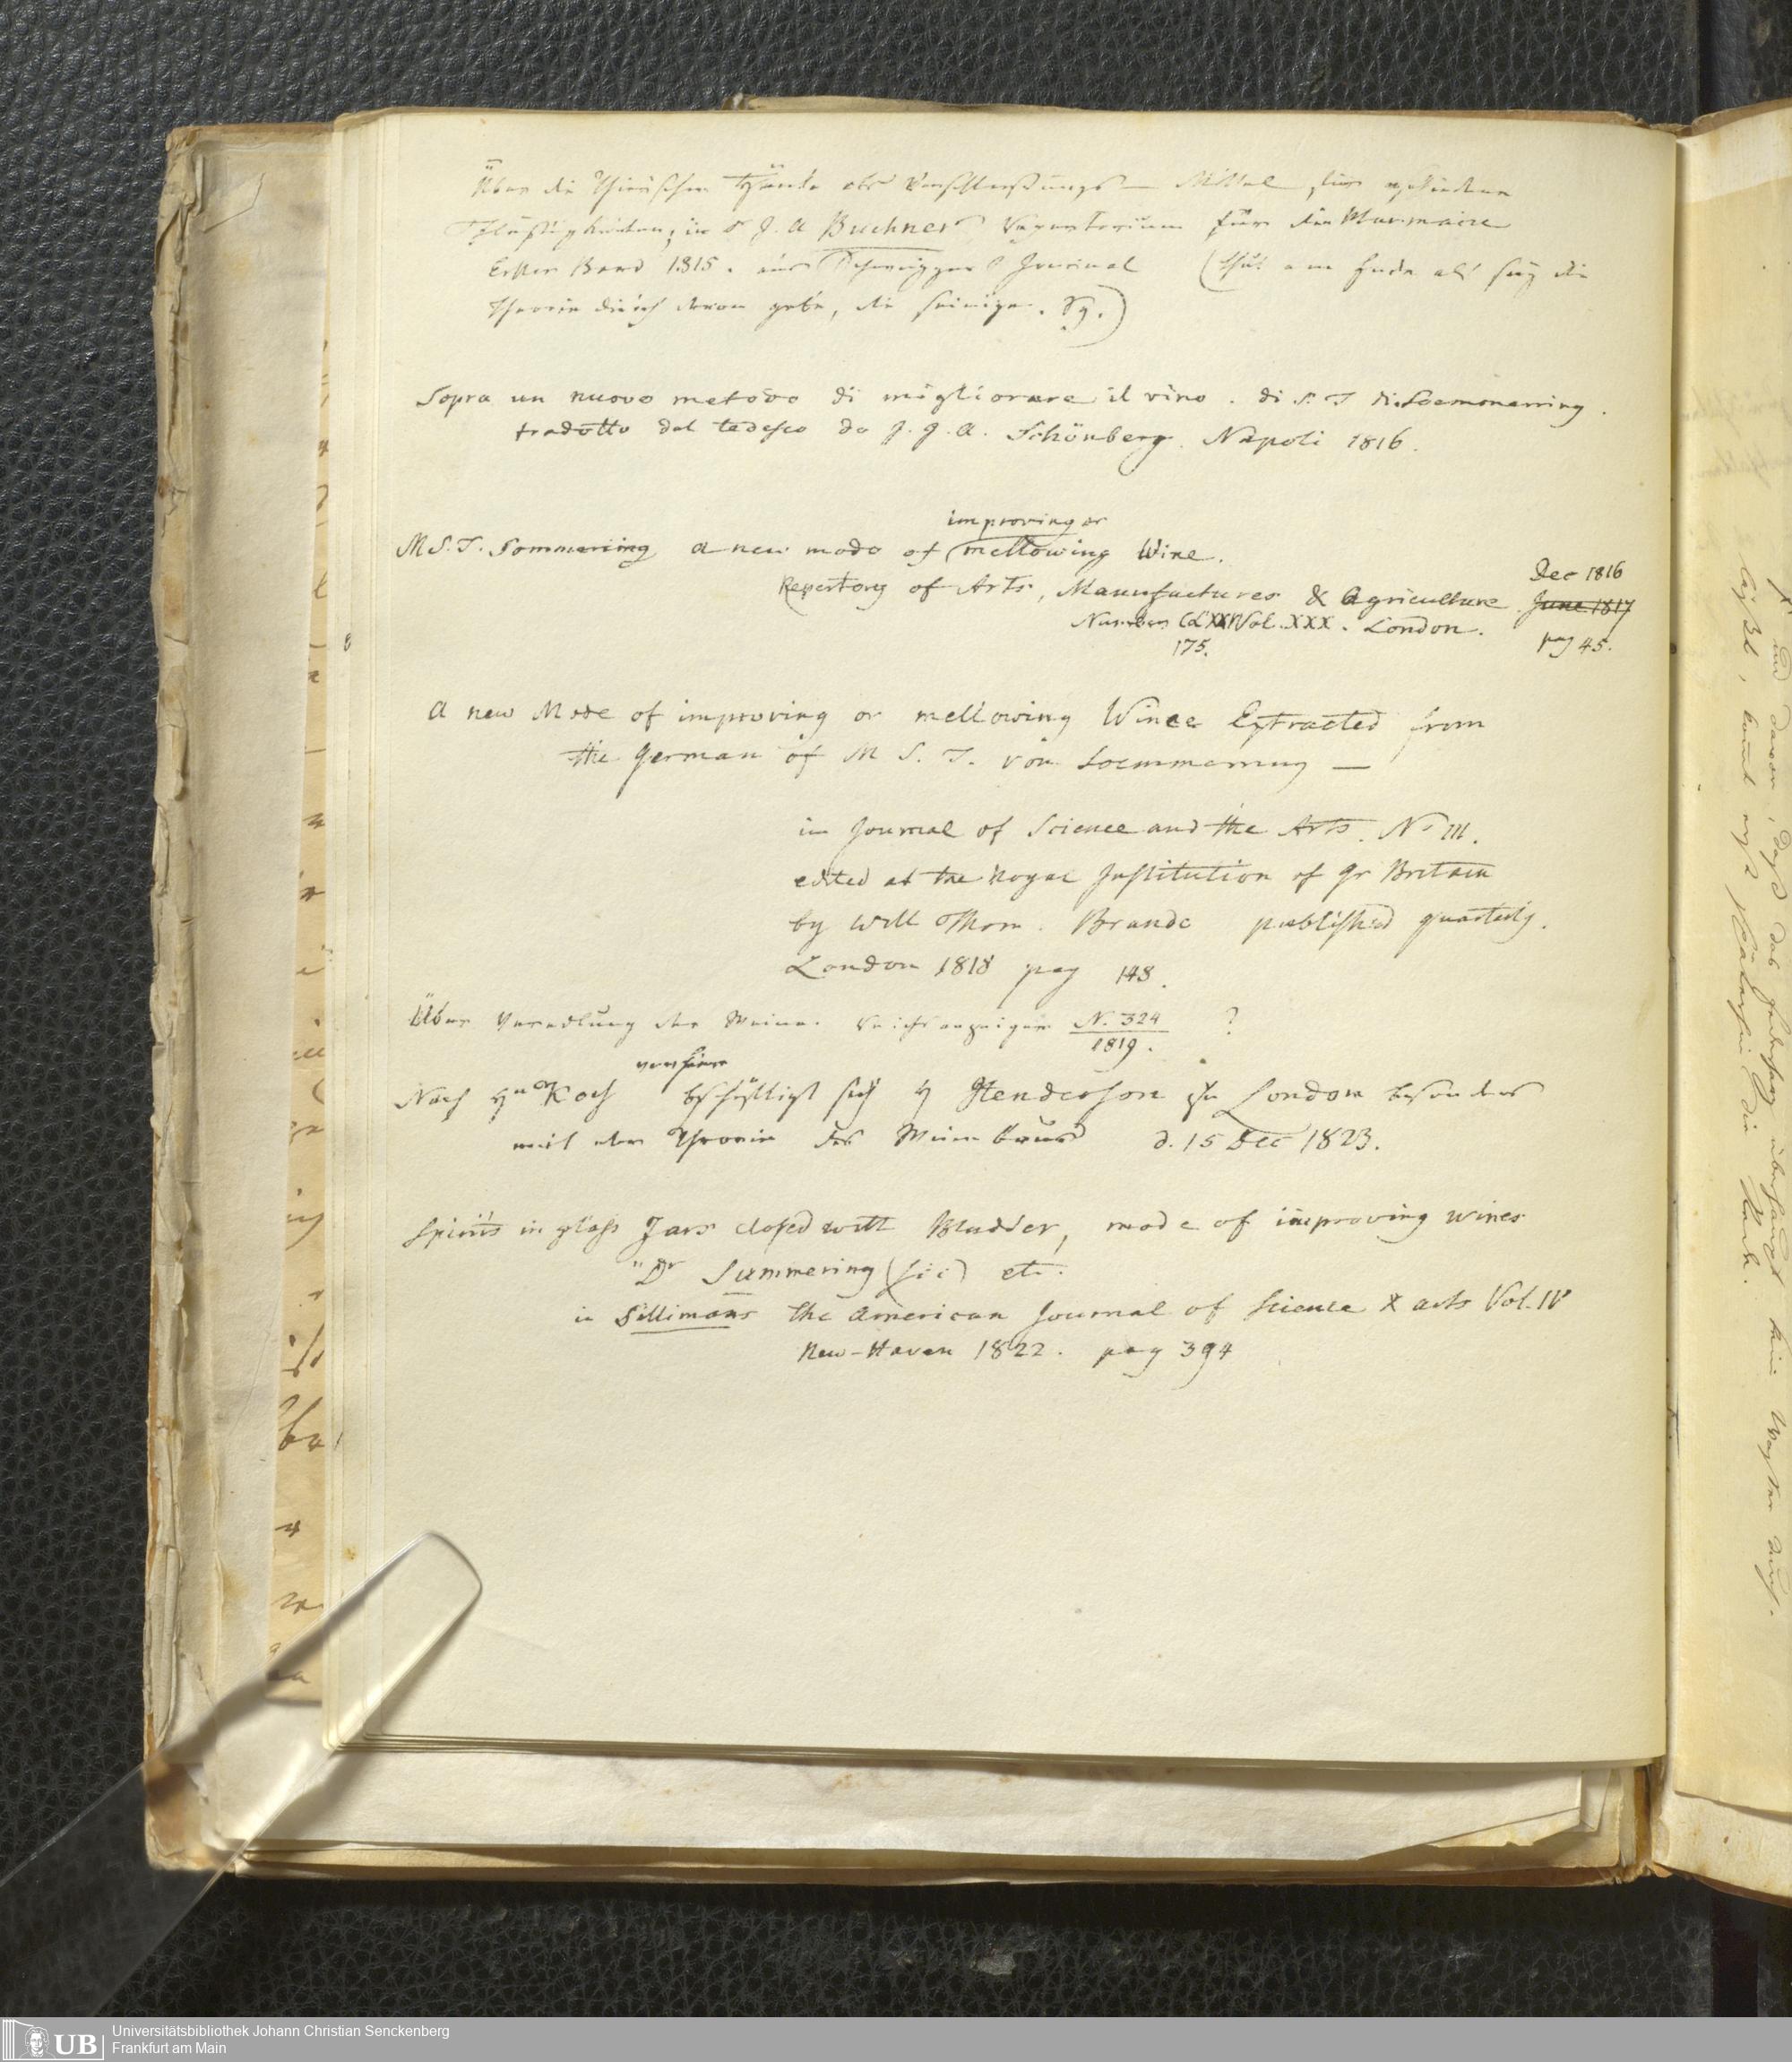 Über die Thierischen Häute als Verschließungs Mittel für verschiedene
Flüßigkeiten, in J. A Buchners Repertorium für die Pharmacie
Erster Band 1815. aus Schweiggers Journal (thut am Ende als sey die
Theorie die ich davon gebe, die seinige. Sg.)
Sopra un nuovo metodo di migliorare il vino. di S. T di Soemmerring.
tradotto dal tedesco da J. J. A. Schönberg. Napoli 1816.
improving or
M S. T. Sommering a new mode of mellowing Wine.
Dec 1816
Repertory of Arts, Manufactures & Agriculture. June 1817
Number CLXXV Vol. XXX. London. pag 45.
175.
A new Mode of improving or mellowing Wines Extracted from
the German of M S. T. von Soemmerring —
in Journal of Science and the Arts. No III.
edited at the Royal Institution of Gr Britain
by Will Thom. Brande published quarterly.
London 1818 pag 148.
Über Veredlung der Weine. Reichsanzeiger N. 324 ?
1819.
Nach Hn Koch beschäftigt sich H Henderson zu London besonders
mit der Theorie des Weinbaus d. 15 Dec 1823.
Spirits in glass Jars closed with Bladder, mode of improving wines
"Dr Summering (sic) etc.
in Sillimans the American Journal of Science & arts Vol. IV
New-Haven 1822. pag 394
Universitätsbibliothek Johann Christian Senckenberg
Frankfurt am Main
UB